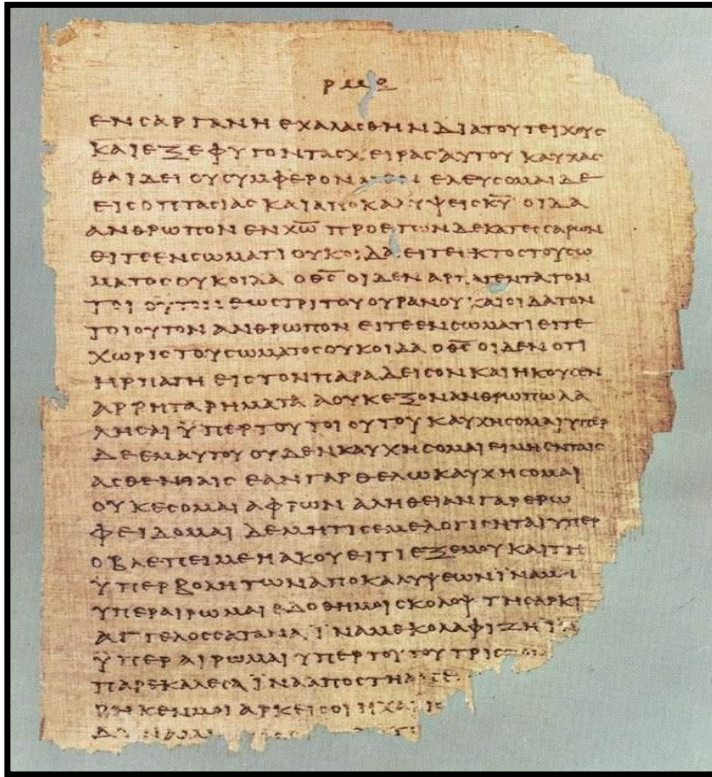 ρμε
ΕΝ ΣΑΡΓΑΝΗ ΕΧΑΛΑΣΘΗΝ ΔΙΑ ΤΟΥ ΤΕΙΧΟΥΣ
ΚΑΙ ΕΞΕΦΥΓΟΝ ΤΑΣ ΧΕΙΡΑΣ ΑΥΤΟΥ ΚΑΥΧΑΣ
ΘΑΙ ΔΕΙ ΟΥ ΣΥΜΦΕΡΟΝ ΕΛΕΥΣΟΜΑΙ ΔΕ
ΕΙΣ ΟΠΤΑΣΙΑΣ ΚΑΙ ΑΠΟΚΑΛΥΨΕΙΣ ΚΥ ΟΙΔΑ
ΑΝΘΡΩΠΟΝ ΕΝ ΧΩ ΠΡΟ ΕΤΩΝ ΔΕΚΑΤΕΣΣΑΡΩΝ
ΕΙΤΕ ΕΝ ΣΩΜΑΤΙ ΟΥΚ ΟΙΔΑ ΕΙΤΕ ΕΚΤΟΣ ΤΟΥ ΣΩ
ΜΑΤΟΣ ΟΥΚ ΟΙΔΑ Ο ΘΣ ΟΙΔΕΝ ΑΡΠΑΓΕΝΤΑ ΤΟΝ
ΤΟΙΟΥΤΟΝ ΕΩΣ ΤΡΙΤΟΥ ΟΥΡΑΝΟΥ ΚΑΙ ΟΙΔΑ ΤΟΝ
ΤΟΙΟΥΤΟΝ ΑΝΘΡΩΠΟΝ ΕΙΤΕ ΕΝ ΣΩΜΑΤΙ ΕΙΤΕ
ΧΩΡΙΣ ΤΟΥ ΣΩΜΑΤΟΣ ΟΥΚ ΟΙΔΑ Ο ΘΣ ΟΙΔΕΝ ΟΤΙ
ΗΡΠΑΓΗ ΕΙΣ ΤΟΝ ΠΑΡΑΔΕΙΣΟΝ ΚΑΙ ΗΚΟΥΣΕΝ
ΑΡΡΗΤΑ ΡΗΜΑΤΑ Α ΟΥΚ ΕΞΟΝ ΑΝΘΡΩΠΩ ΛΑ
ΛΗΣΑΙ ΫΠΕΡ ΤΟΥ ΤΟΙΟΥΤΟΥ ΚΑΥΧΗΣΟΜΑΙ ΥΠΕΡ
ΔΕ ΕΜΑΥΤΟΥ ΟΥΔΕΝ ΚΑΥΧΗΣΟΜΑΙ ΕΙ ΜΗ ΕΝ ΤΑΙΣ
ΑΣΘΕΝΕΙΑΙΣ ΕΑΝ ΓΑΡ ΘΕΛΩ ΚΑΥΧΗΣΟΜΑΙ
ΟΥΚ ΕΣΟΜΑΙ ΑΦΡΩΝ ΑΛΗΘΕΙΑΝ ΓΑΡ ΕΡΩ
ΦΕΙΔΟΜΑΙ ΔΕ ΜΗ ΤΙΣ ΕΜΕ ΛΟΓΙΣΗΤΑΙ ΥΠΕΡ
Ο ΒΛΕΠΕΙ ΜΕ Η ΑΚΟΥΕΙ ΤΙ ΕΞ ΕΜΟΥ ΚΑΙ ΤΗ
ΫΠΕΡΒΟΛΗ ΤΩΝ ΑΠΟΚΑΛΥΨΕΩΝ ΪΝΑ ΜΗ
ΥΠΕΡΑΙΡΩΜΑΙ ΕΔΟΘΗ ΜΟΙ ΣΚΟΛΟΨ ΤΗ ΣΑΡΚΙ
ΑΓΓΕΛΟΣ ΣΑΤΑΝΑ ΪΝΑ ΜΕ ΚΟΛΑΦΙΖΗ
ΫΠΕΡΑΙΡΩΜΑΙ ΥΠΕΡ ΤΟΥΤΟΥ ΤΡΙΣ
ΠΑΡΕΚΑΛΕΣΑ ΪΝΑ ΑΠΟΣΤΗ
ΡΗΚΕΝ ΜΟΙ ΑΡΚΕΙ ΣΟΙ Η ΧΑΡΙΣ